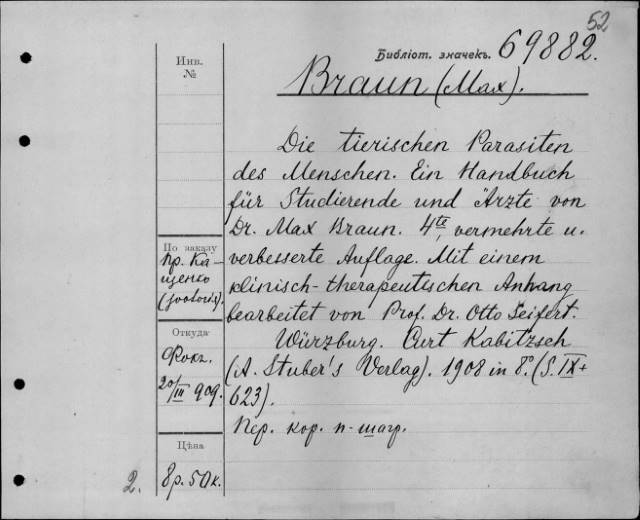 52
Библіот. значекъ. 69882.
Braun (Max).
Die tierischen Parasiten
des Menschen. Ein Handbuch
für Studierende und Ärzte von
Dr. Max Braun. 4te, vermehrte u.
verbesserte Auflage. Mit einem
klinisch-therapeutischen Anhang
bearbeitet von Prof. Dr. Otto Seifert.
Würzburg. Curt Kabitzsch
(A. Stuber's Verlag). 1908 in 8°. (S. IX +
623).
Пер. кор. п-шагр.
Инв.
№
По заказу
пр. Ка-
щенко
Откуда
Фокк.
20/III 909.
Цѣна
8 р. 50 к.
2.